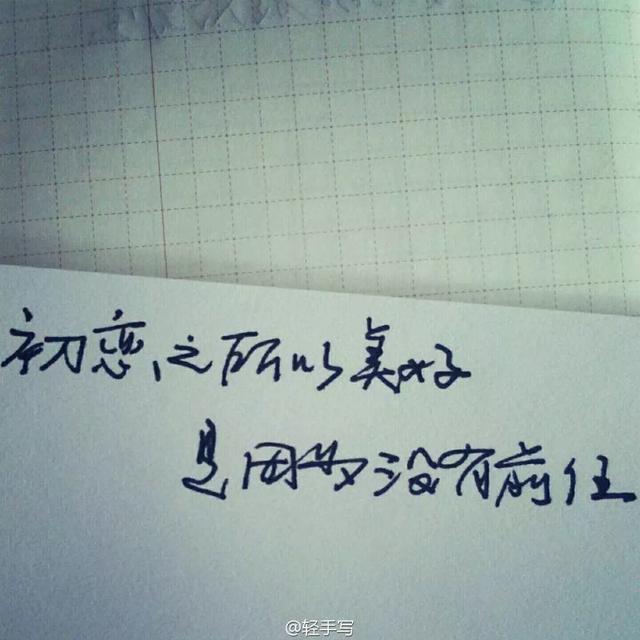 初恋之所以美好
是因为没有前任
@轻手写